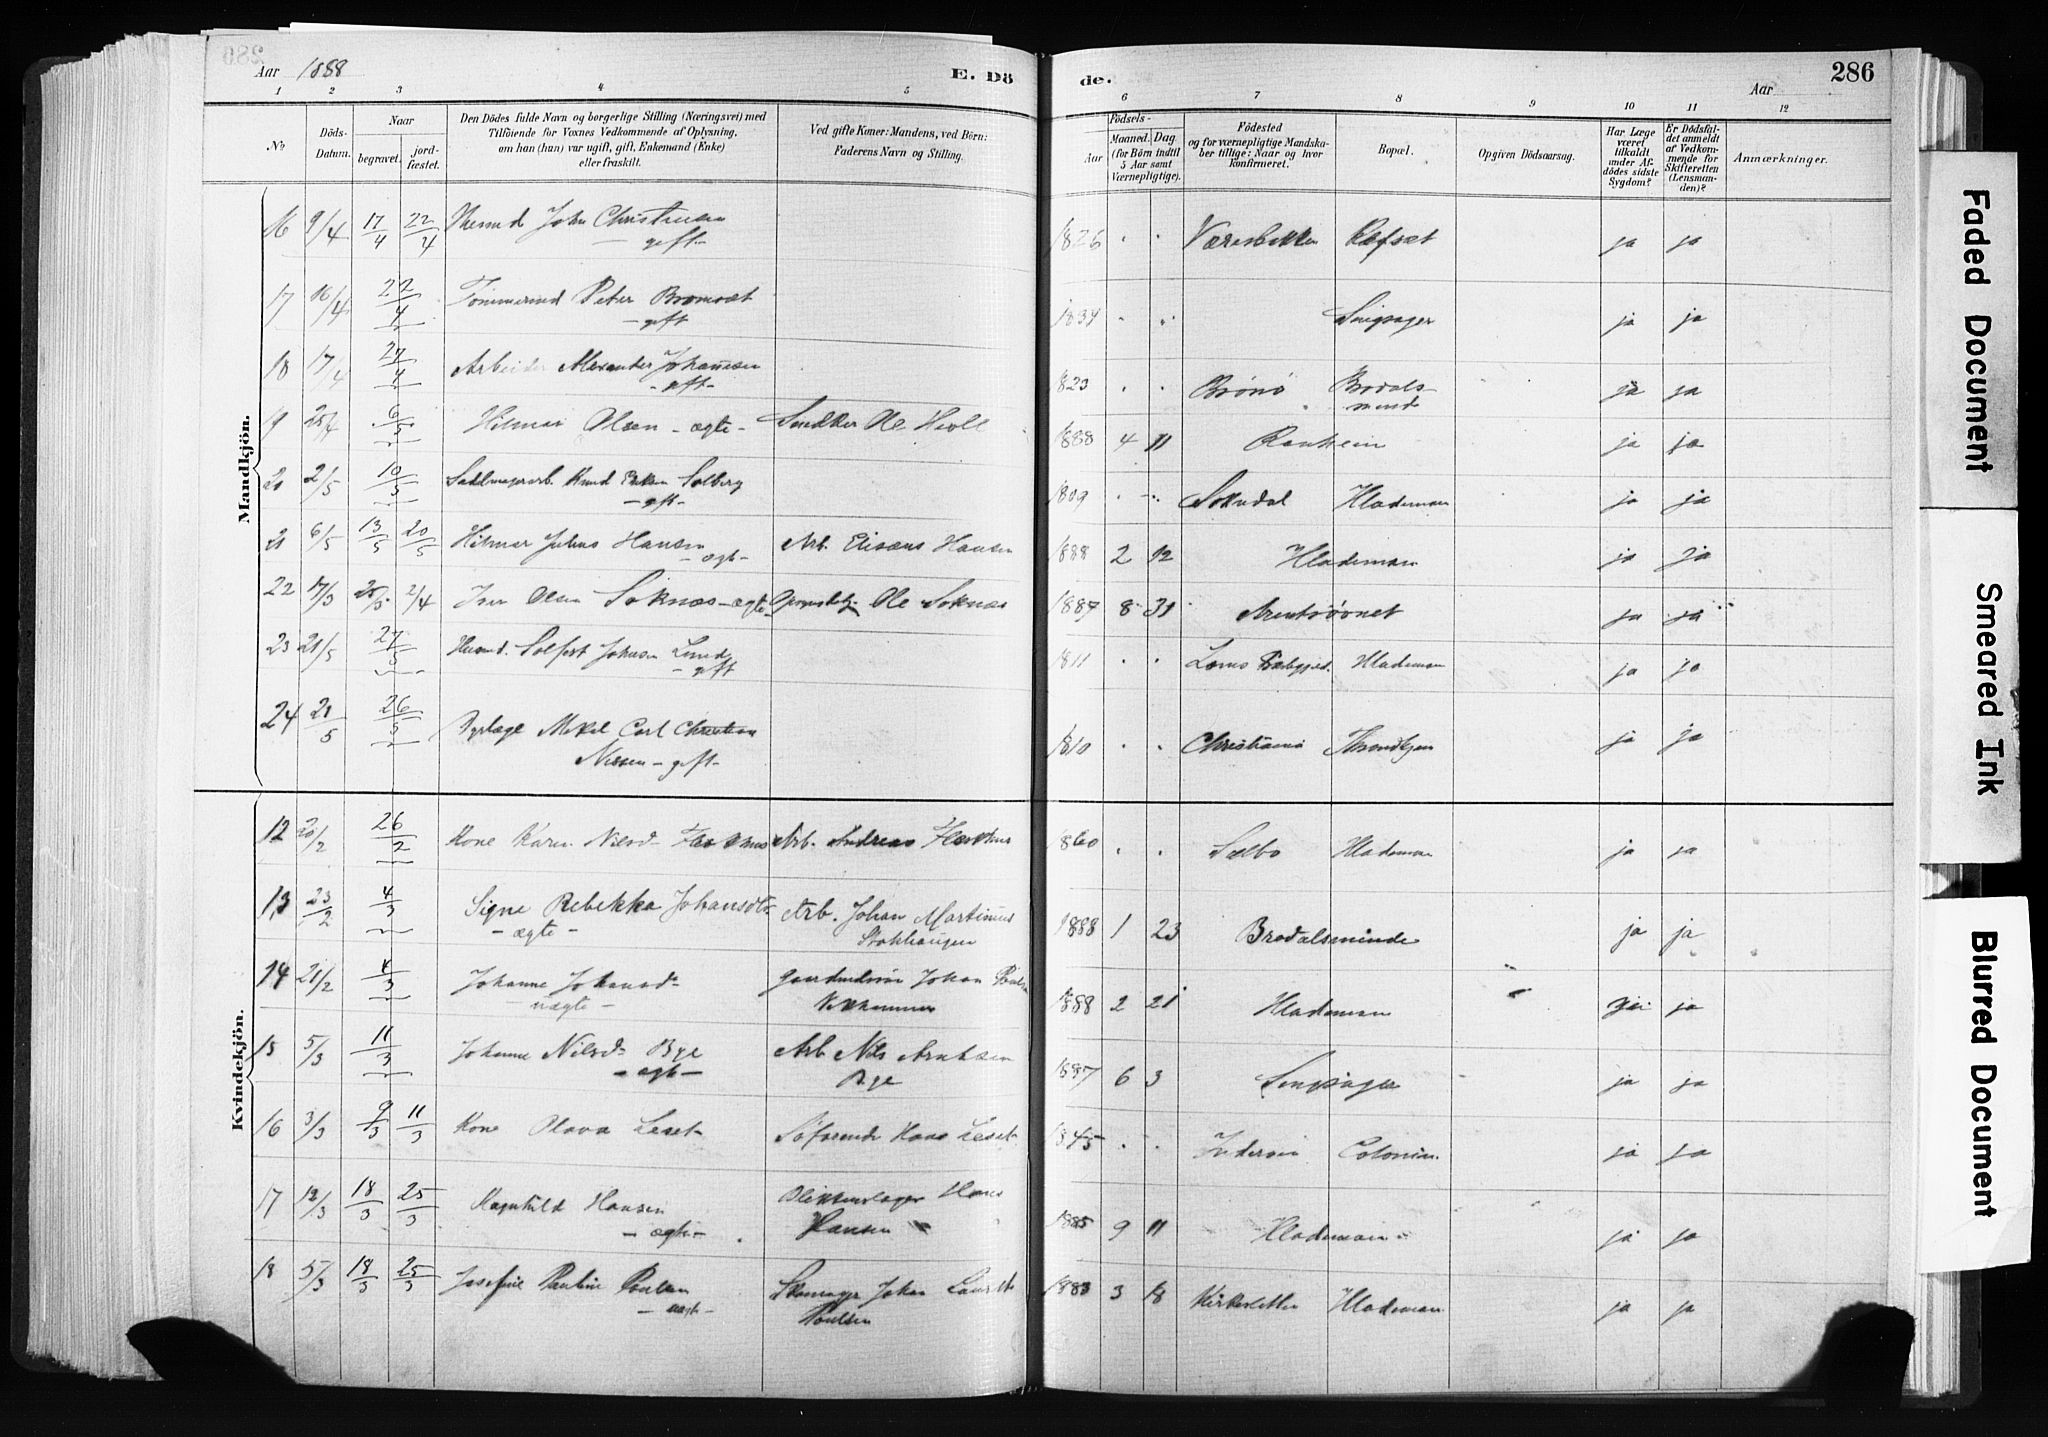 Aar 1888
E. Dö
de.
Aar
286
1 2 3 4 5 6 7 8 9 10 11 12
No
Döds-
Datum.
Naar
begravet.
jord-
fæstet.
Den Dödes fulde Navn og borgerlige Stilling (Næringsvei) med
Tilföiende for Voxnes Vedkommende af Oplysning,
om han (hun) var ugift, gift, Enkemand (Enke)
eller fraskilt.
Ved gifte Koner: Mandens, ved Börn:
Faderens Navn og Stilling.
Födsels-
Aar
Maaned. Dag
(for Börn indtil
5 Aar samt
Værnepligtige).
Födested
og for værnepligtige Mandska-
ber tillige: Naar og hvor
konfirmeret.
Bopæl.
Opgiven Dödsaarsag.
Har Læge
været
tilkaldt
under Af-
dödes sidste
Sygdom?
Er Dödsfal-
det anmeldt
af Vedkom-
mende for
Skifteretten
(Lensman-
den)?
Anmærkninger.
Mandkjön.
16 9/4 17/4 22/4 John Christensen 1826 Refset ja ja
— gift —
17 16/4 22/4 Tømmermd Peter Bromset 1834 Singsager ja ja
— gift
18 17/4 27/4 Arbeider Alexander Johansen 1823 Brønø Brodals ja ja
— gift — minde
19 25/4 6/5 Hilmar Olsen — ægte — Snedker Ole 1888 4 11 Ranheim ja ja
20 2/5 10/5 Knud Solberg 1809 Soknedal Hlademoen ja ja
— gift —
21 6/5 13/5 20/5 Hilmar Julius Hansen Arb. Elisæus Hansen 1888 2 12 Hlademoen ja ja
— ægte —
22 17/3 25/3 2/4 Iver Olsen Soknæs — ægte — Ole Soknæs 1887 8 31 ja ja
23 21/5 27/5 Johnsen Lund 1811 Hlademoen ja ja
— gift
24 21/5 26/5 Carl Christian 1810 Christiania Throndhjem ja ja
Nissen — gift —
Kvindekjön.
12 20/2 26/2 Kone Karen Nilsd. Arb. Andreas 1860 Selbo Hlademoen ja ja
13 23/2 4/3 Signe Rebekka Johansdtr. Arb. Johan Martinus 1888 1 23 Brodalsminde ja ja
— ægte — Stokhaugen
14 21/2 4/3 Johanne Johansd. Johan 1888 2 21 Hlademoen ja ja
— uægte —
15 5/3 11/3 Johanne Nilsd. Bye Arb. Nils Arntsen 1887 6 3 Singsager ja ja
— ægte — Bye
16 3/3 9/3 11/3 Kone Olava Leset Søfarende Hans Leset 1845 Inderøen Colonien ja ja
17 12/3 18/3 25/3 Magnhild Hansen Blikkenslager Hans 1885 9 11 Hlademoen ja ja
— ægte — Hansen
18 5/3 18/3 25/3 Josefine Pauline Poulsen Skomager Johan 1883 3 18 Kirkesletten Hlademoen ja ja
— uægte — Poulsen
Faded Document
Smeared Ink
Blurred Document